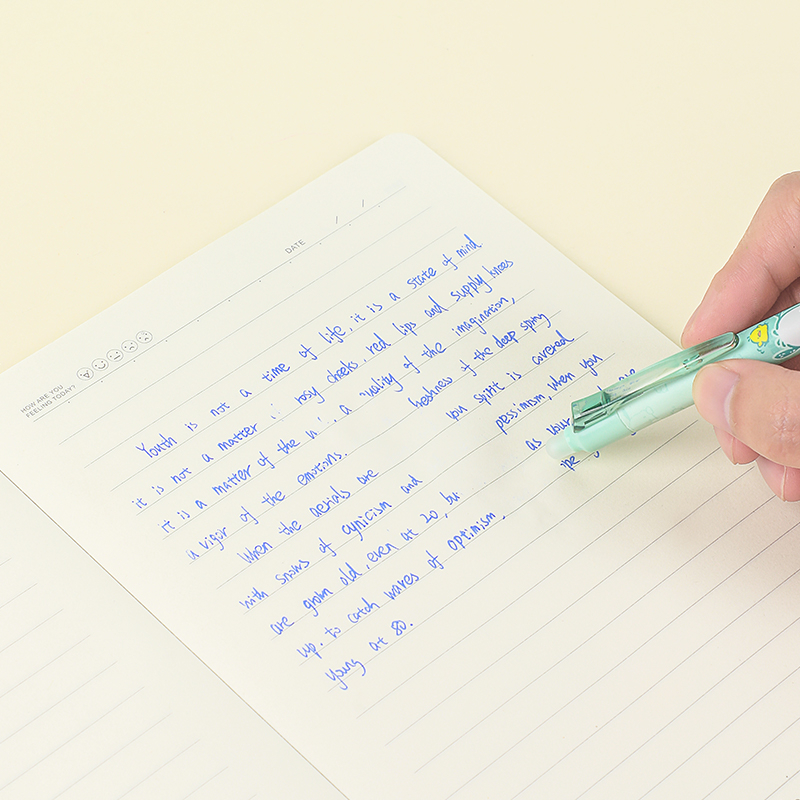 DATE / /
HOW ARE YOU
FEELING TODAY?
Youth is not a time of life, it is a state of mind
it is not a matter rosy cheeks, red lips and supply knees
it is a matter of the a quality of the imagination,
a vigor of the emotions. of the deep spring
When the aerials are you spirit is covered
with snows of cynicism and pessimism, when you
are grown old, even at 20, as your
up. to catch waves of optimism,
young at 80.